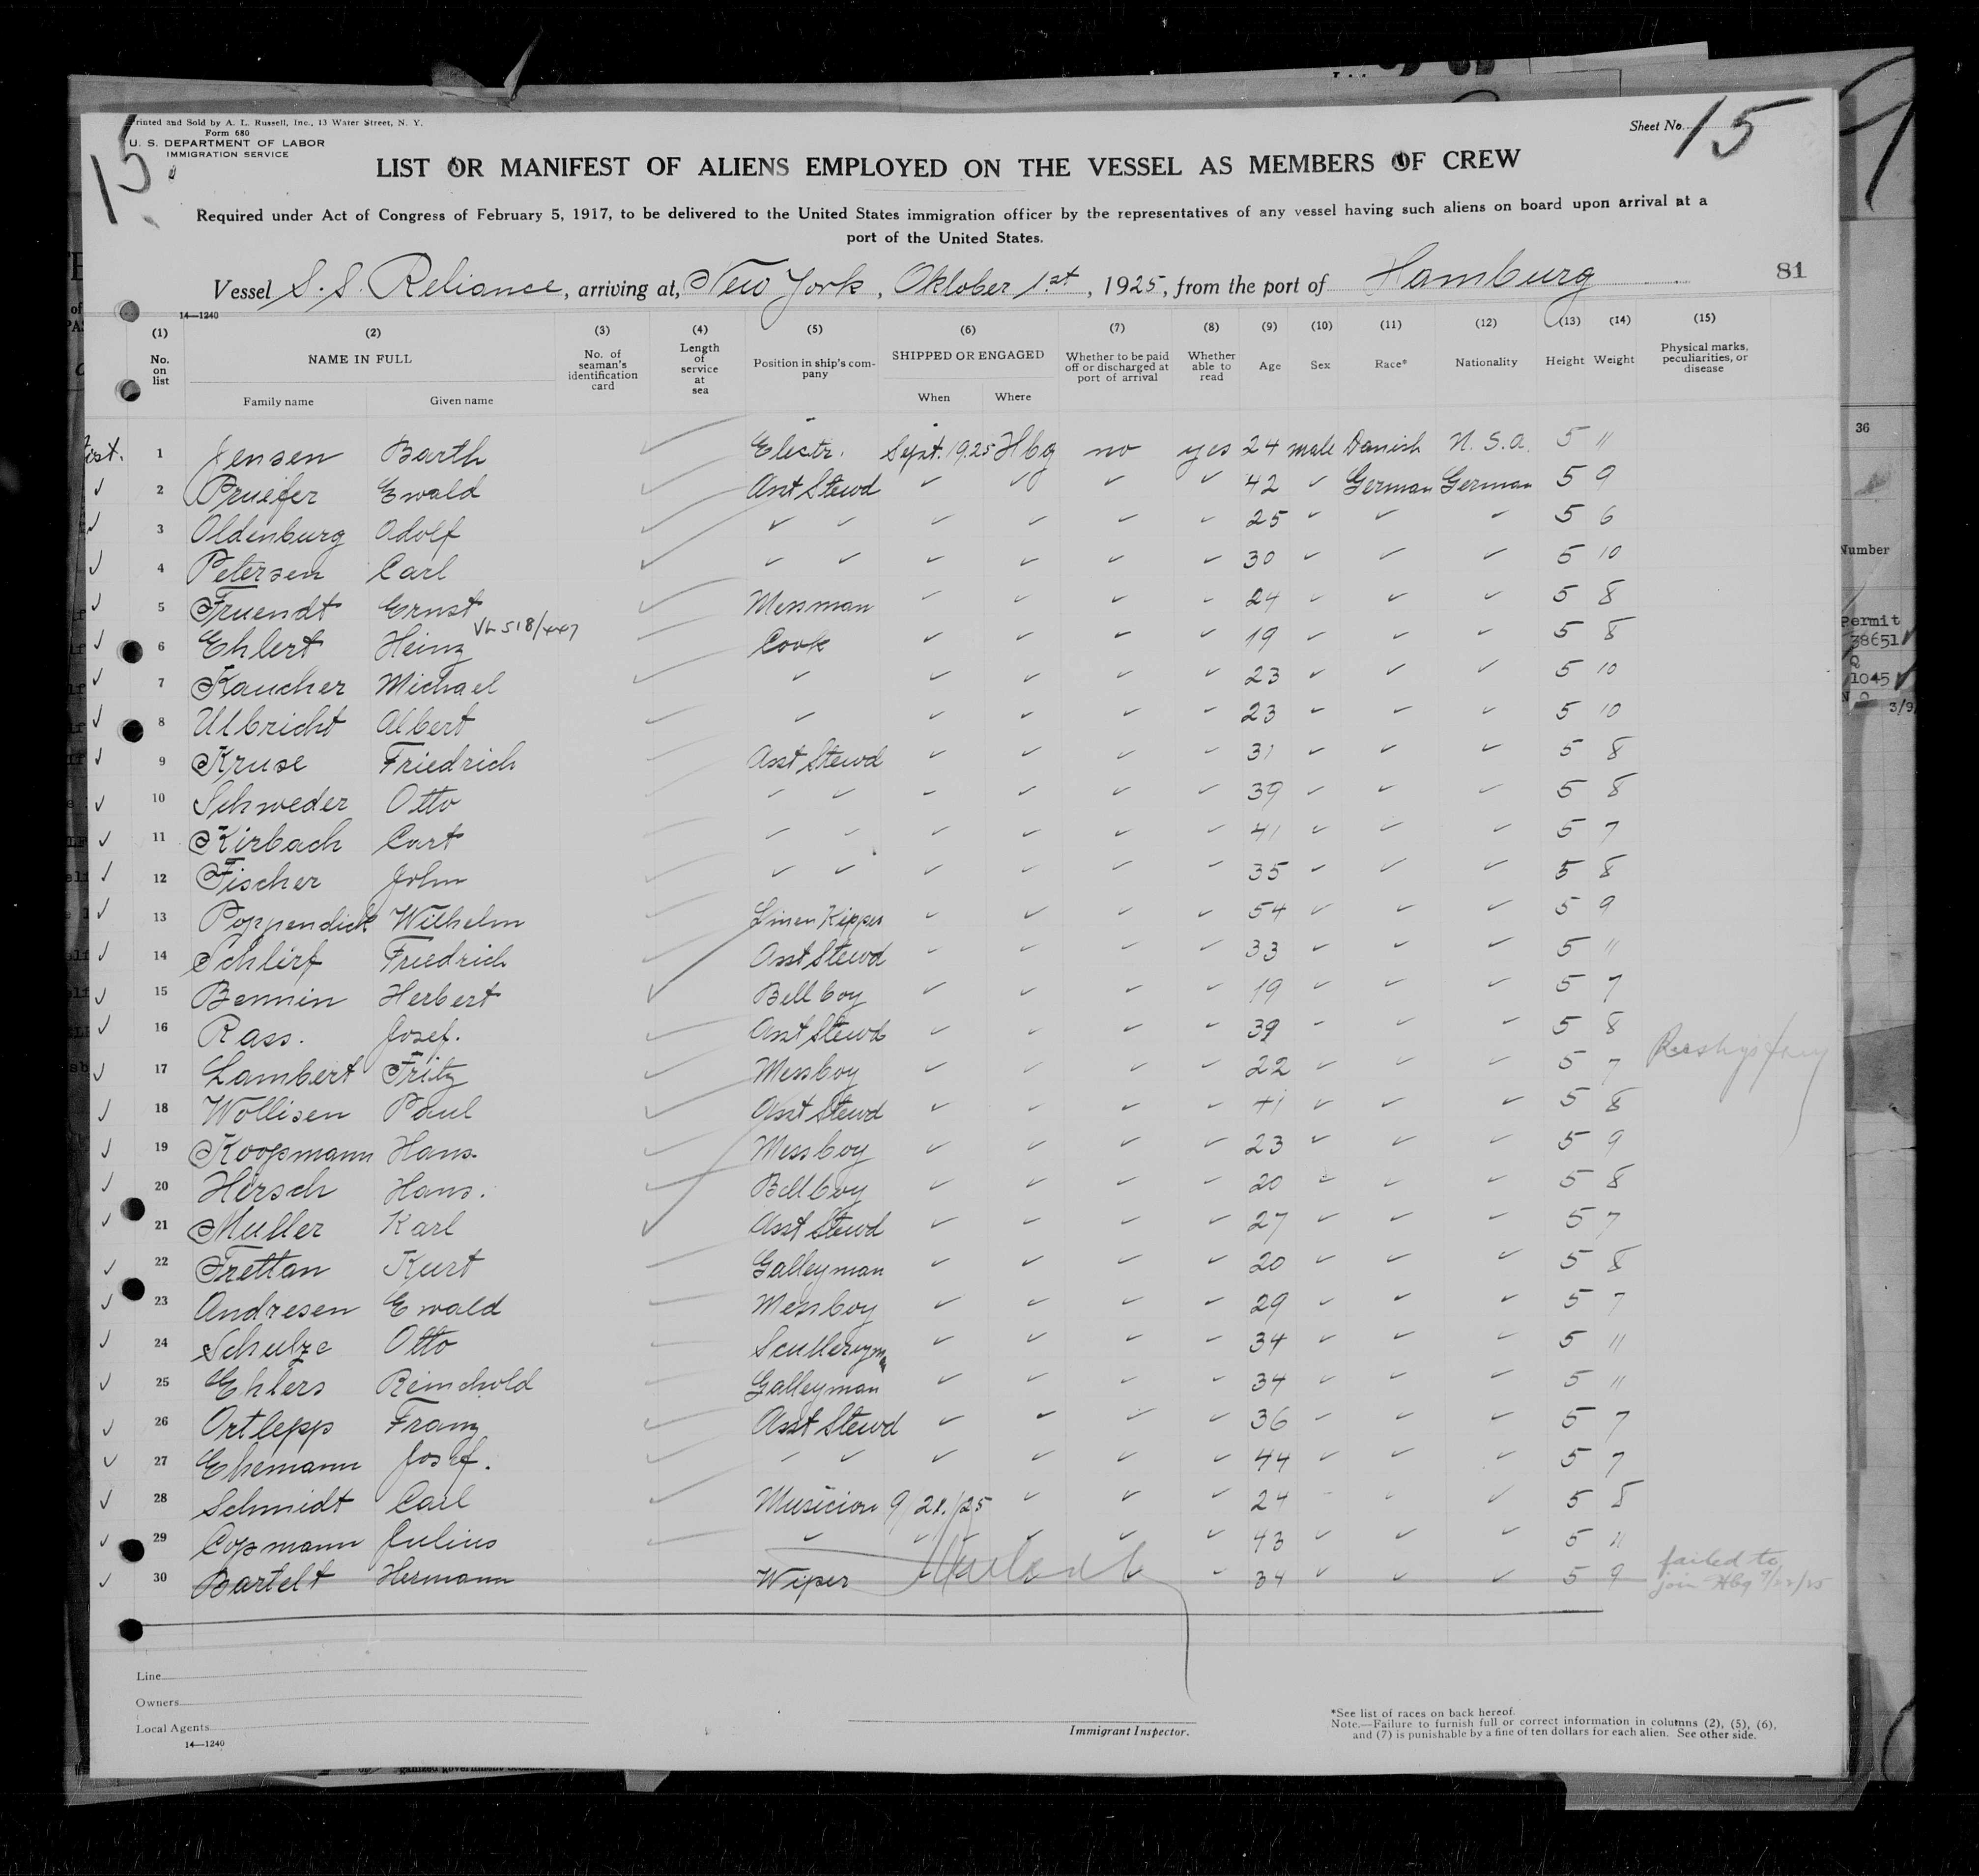 Printed and Sold by A. L. Russell, Inc., 13 Water Street, N. Y.
Form 680
U. S. DEPARTMENT OF LABOR
IMMIGRATION SERVICE
15
Sheet No. 15
LIST OR MANIFEST OF ALIENS EMPLOYED ON THE VESSEL AS MEMBERS OF CREW
Required under Act of Congress of February 5, 1917, to be delivered to the United States immigration officer by the representatives of any vessel having such aliens on board upon arrival at a
port of the United States.
Vessel S.S. Reliance, arriving at, New York, Oktober 1st, 1925, from the port of Hamburg
81
14—1240
(1) (2) (3) (4) (5) (6) (7) (8) (9) (10) (11) (12) (13) (14) (15)
No. on list NAME IN FULL No. of seaman's identification card Length of service at sea Position in ship's company SHIPPED OR ENGAGED Whether to be paid off or discharged at port of arrival Whether able to read Age Sex Race* Nationality Height Weight Physical marks, peculiarities, or disease
Family name Given name When Where
1 Jensen Barth ✓ Electr. Sept. 19.25 Hbg no yes 24 male Danish N.S.A. 5 11
✓ 2 Pruefer Ewald ✓ Asst Stewd ✓ ✓ ✓ ✓ 42 ✓ German German 5 9
✓ 3 Oldenburg Adolf ✓ ✓ ✓ ✓ ✓ ✓ ✓ 25 ✓ ✓ ✓ 5 6
✓ 4 Petersen Carl ✓ ✓ ✓ ✓ ✓ ✓ ✓ 30 ✓ ✓ ✓ 5 10
✓ 5 Fruendt Ernst ✓ Messman ✓ ✓ ✓ ✓ 24 ✓ ✓ ✓ 5 8
✓ 6 Ehlert Heinz VL 518/447 ✓ Cook ✓ ✓ ✓ ✓ 19 ✓ ✓ ✓ 5 8
✓ 7 Kaucher Michael ✓ ✓ ✓ ✓ ✓ ✓ 23 ✓ ✓ ✓ 5 10
✓ 8 Ulbricht Albert ✓ ✓ ✓ ✓ ✓ ✓ 23 ✓ ✓ ✓ 5 10
✓ 9 Kruse Friedrich ✓ Asst Stewd ✓ ✓ ✓ ✓ 31 ✓ ✓ ✓ 5 8
✓ 10 Schweder Otto ✓ ✓ ✓ ✓ ✓ ✓ ✓ 39 ✓ ✓ ✓ 5 8
✓ 11 Kirbach Curt ✓ ✓ ✓ ✓ ✓ ✓ ✓ 41 ✓ ✓ ✓ 5 7
✓ 12 Fischer John ✓ ✓ ✓ ✓ ✓ ✓ ✓ 35 ✓ ✓ ✓ 5 8
✓ 13 Poppendick Wilhelm ✓ Linen Kipper ✓ ✓ ✓ ✓ 54 ✓ ✓ ✓ 5 9
✓ 14 Schlirf Friedrich ✓ Asst Stewd ✓ ✓ ✓ ✓ 33 ✓ ✓ ✓ 5 11
✓ 15 Bennin Herbert ✓ Bellboy ✓ ✓ ✓ ✓ 19 ✓ ✓ ✓ 5 7
✓ 16 Rass. Josef. ✓ Asst Stewd ✓ ✓ ✓ ✓ 39 ✓ ✓ ✓ 5 8
✓ 17 Lambert Fritz ✓ Messboy ✓ ✓ ✓ ✓ 22 ✓ ✓ ✓ 5 7
✓ 18 Wollisen Paul ✓ Asst Stewd ✓ ✓ ✓ ✓ 41 ✓ ✓ ✓ 5 8
✓ 19 Koopmann Hans. ✓ Messboy ✓ ✓ ✓ ✓ 23 ✓ ✓ ✓ 5 9
✓ 20 Hirsch Hans. ✓ Bellboy ✓ ✓ ✓ ✓ 20 ✓ ✓ ✓ 5 8
✓ 21 Muller Karl ✓ Asst Stewd ✓ ✓ ✓ ✓ 27 ✓ ✓ ✓ 5 7
✓ 22 Trettan Kurt Galleyman ✓ ✓ ✓ ✓ 20 ✓ ✓ ✓ 5 8
✓ 23 Andresen Ewald Messboy ✓ ✓ ✓ ✓ 29 ✓ ✓ ✓ 5 7
✓ 24 Schulze Otto Scullerym ✓ ✓ ✓ ✓ 34 ✓ ✓ ✓ 5 11
✓ 25 Ehlers Reinchold Galleyman ✓ ✓ ✓ ✓ 34 ✓ ✓ ✓ 5 11
✓ 26 Ortlepp Franz ✓ Asst Stewd ✓ ✓ ✓ ✓ 36 ✓ ✓ ✓ 5 7
✓ 27 Ehemann Josef. ✓ ✓ ✓ ✓ ✓ ✓ ✓ 44 ✓ ✓ ✓ 5 7
✓ 28 Schmidt Carl ✓ Musicion 9/21./25 ✓ ✓ ✓ 24 ✓ ✓ ✓ 5 8
✓ 29 Copmann Julius ✓ ✓ ✓ ✓ ✓ ✓ 43 ✓ ✓ ✓ 5 11
✓ 30 Bartelt Hermann Wiper ✓ 34 ✓ ✓ ✓ 5 9 failed to
join Hbg 9/22/25
Line
Owners
Local Agents
14—1240
Immigrant Inspector.
*See list of races on back hereof.
Note.—Failure to furnish full or correct information in columns (2), (5), (6),
and (7) is punishable by a fine of ten dollars for each alien. See other side.
36
Number
Permit
38651
1045
3/9